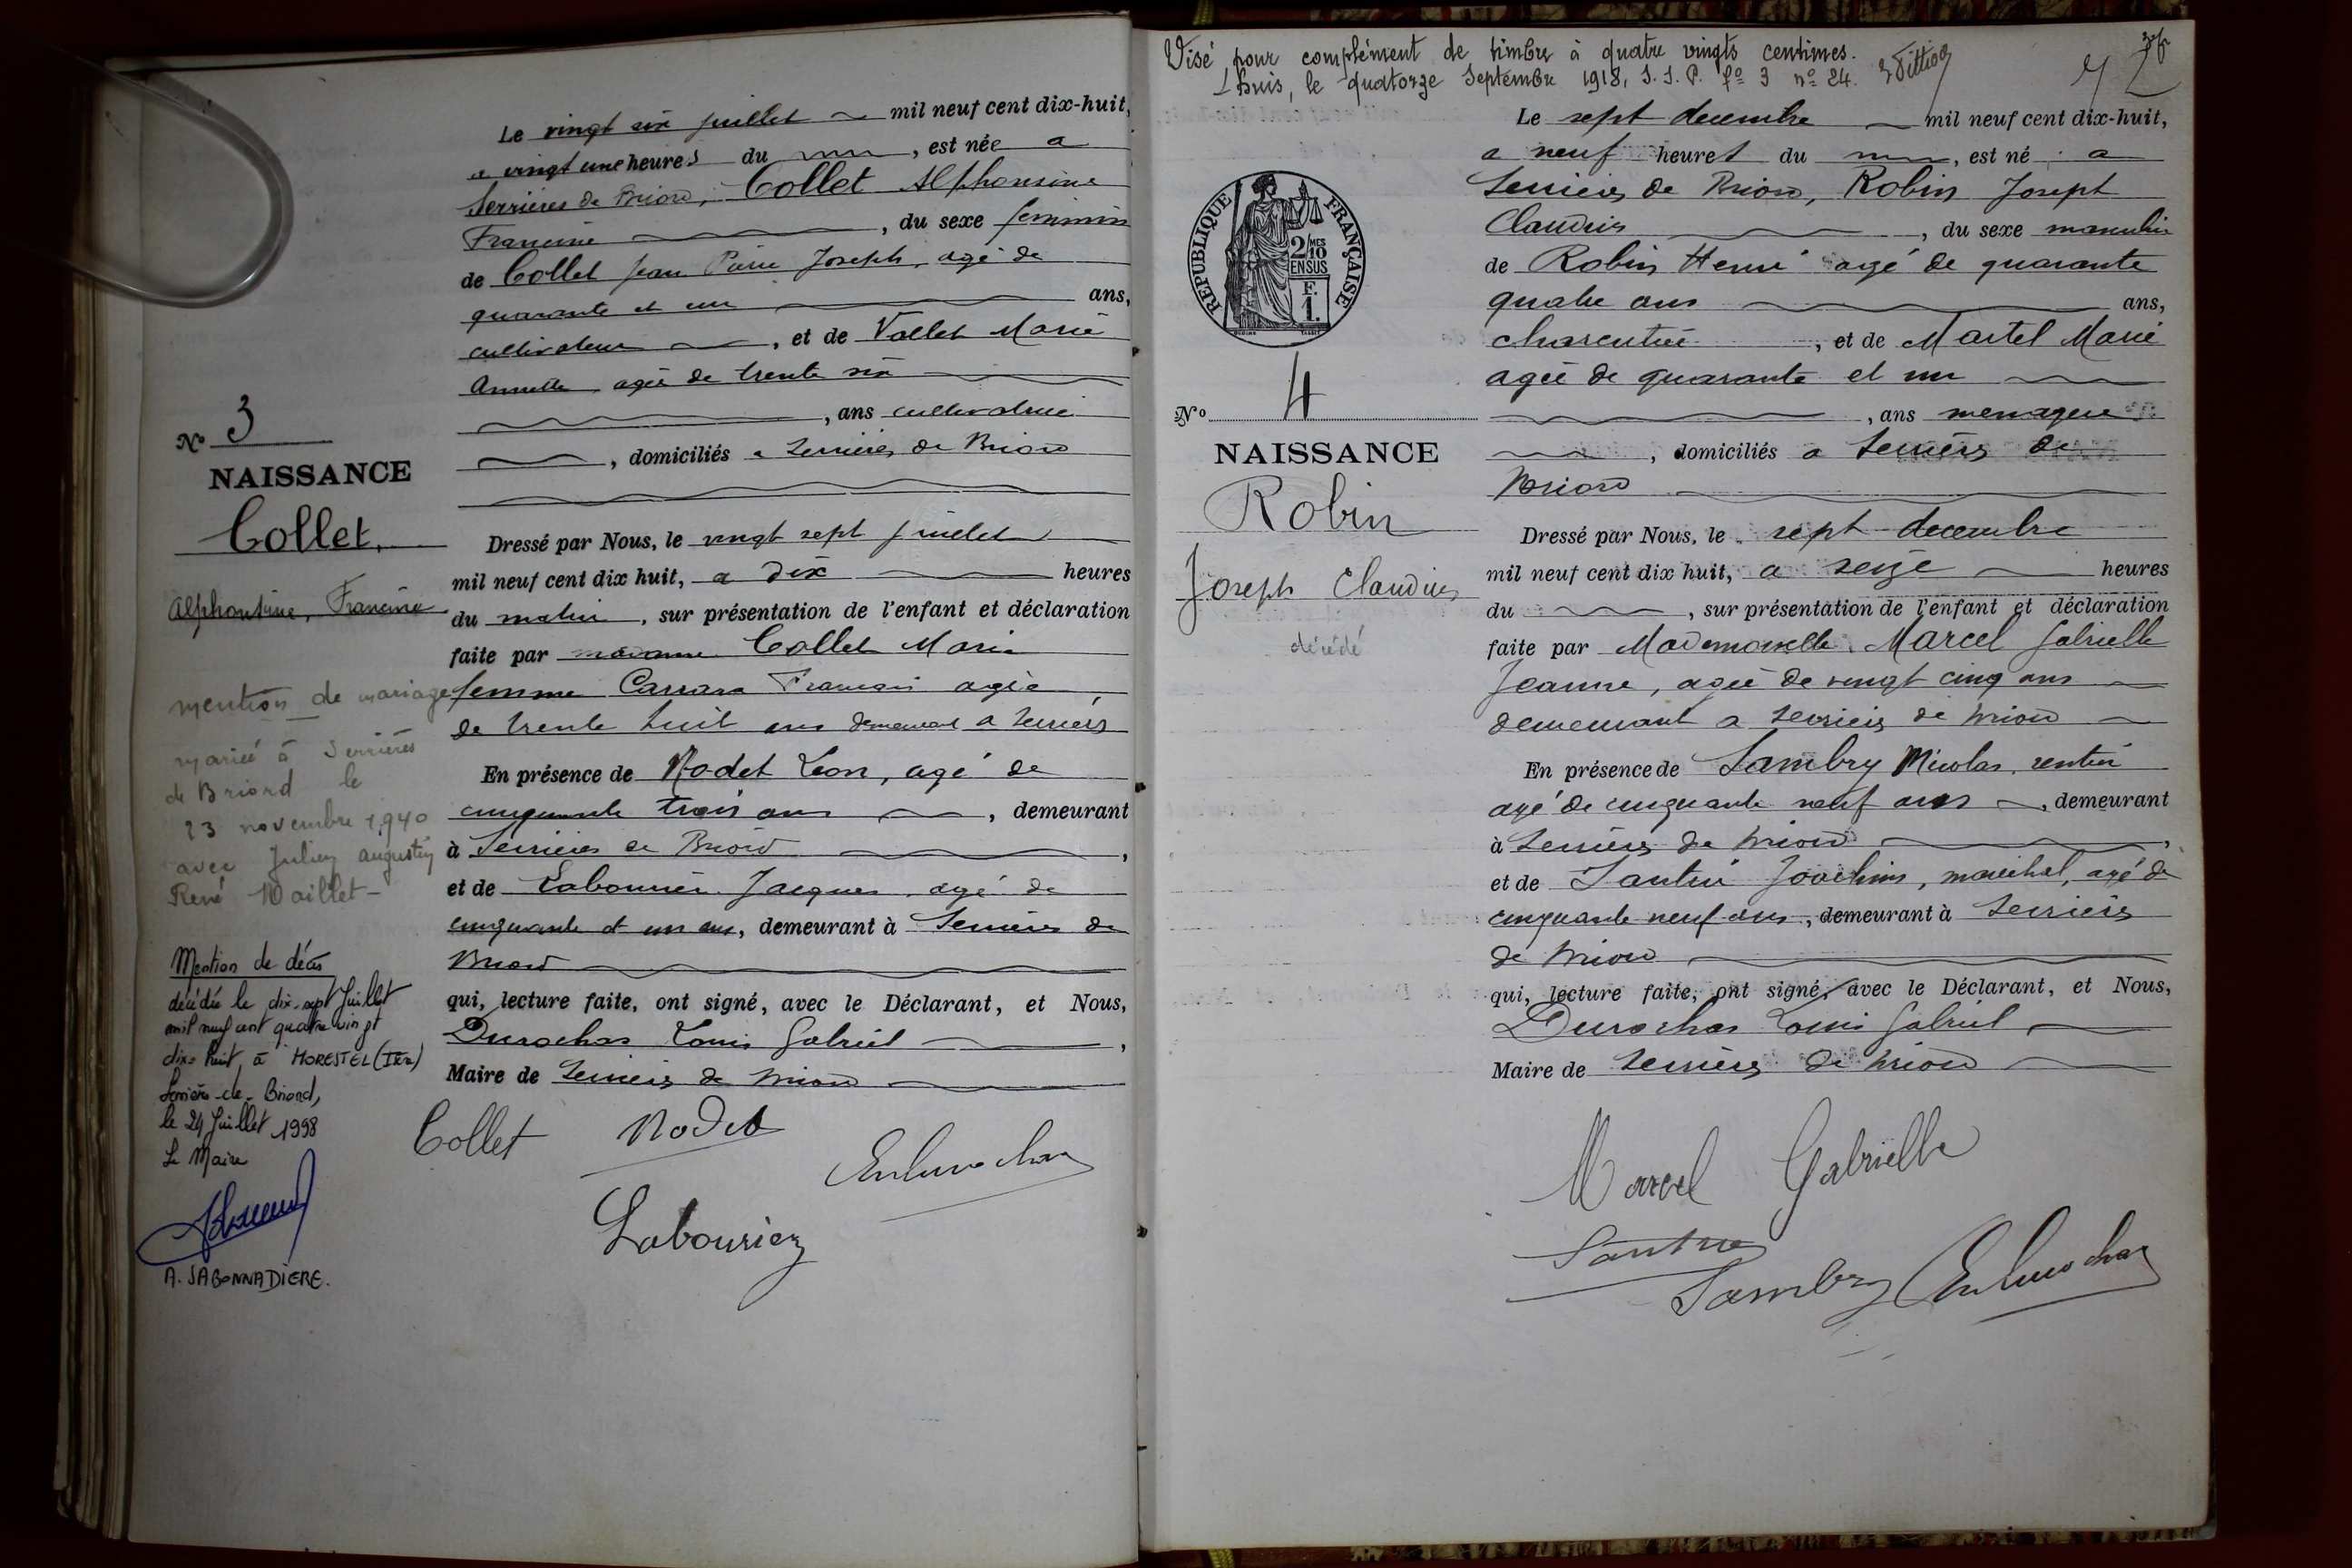 Le vingt six juillet mil neuf cent dix-huit,
a vingt une heures du , est née a
Serrières de Briord, Collet Alphonsine
Francine , du sexe feminin
de Collet Jean Pierre Joseph, agé de
quarante et un ans,
cultivateur , et de Vallet Marie
Annette agée de trente six
, ans cultivatrice
, domiciliés a Serrières de Briord
No 3
NAISSANCE
Collet.
Alphonsine, Francine
Dressé par Nous, le vingt sept juillet
mil neuf cent dix huit, a dix heures
du matin , sur présentation de l'enfant et déclaration
faite par madame Collet Marie
femme Carrara Francois agée
de trente huit ans demeurant a Serrières
En présence de Nodet Leon, agé de
cinquante trois ans , demeurant
à Serrières de Briord ,
et de Labourier Jacques agé de
cinquante et un ans, demeurant à Serrières de
Briord
qui, lecture faite, ont signé, avec le Déclarant, et Nous,
Durochas Louis Gabriel ,
Maire de Serrières de Briord
mention de mariage
mariée à Serrières
de Briord le
23 novembre 1940
avec Julien augustin
René Maillet -
Mention de décès
décédée le dix-sept Juillet
mil neuf cent quatre vingt
dix-huit, à MORESTEL (Isère)
Serrières-de-Briord,
le 24 Juillet 1998
Le Maire
A. SABONNADIERE.
Collet Nodet
Labourier
Visé pour complément de timbre à quatre vingts centimes.
Lhuis, le quatorze Septembre 1918, S. S. P. fo 3 no 24.
RÉPUBLIQUE FRANÇAISE
2 MES
10
EN SUS
F.
1.
No 4
NAISSANCE
Robin
Joseph Claudius
décédé
Le sept decembre mil neuf cent dix-huit,
a neuf heures du , est né a
Serrières de Briord, Robin Joseph
Claudius , du sexe masculin
de Robin Henri agé de quarante
quatre ans ans,
charcutier , et de Martel Marie
agée de quarante et un
, ans menagere
, domiciliés a Serrières de
Briord
Dressé par Nous, le sept decembre
mil neuf cent dix huit, a seize heures
du , sur présentation de l'enfant et déclaration
faite par Mademoiselle Marcel Gabrielle
Jeanne, agée de vingt cinq ans
demeurant a Serrières de Briord
En présence de Sambry Nicolas, rentier
agé de cinquante neuf ans , demeurant
à Serrières de Briord ,
et de Joachim, marechal, agé de
cinquante neuf ans, demeurant à Serrières
de Briord
qui, lecture faite, ont signé, avec le Déclarant, et Nous,
Durochas Louis Gabriel
Maire de Serrières de Briord
Marcel Gabrielle
Sambry